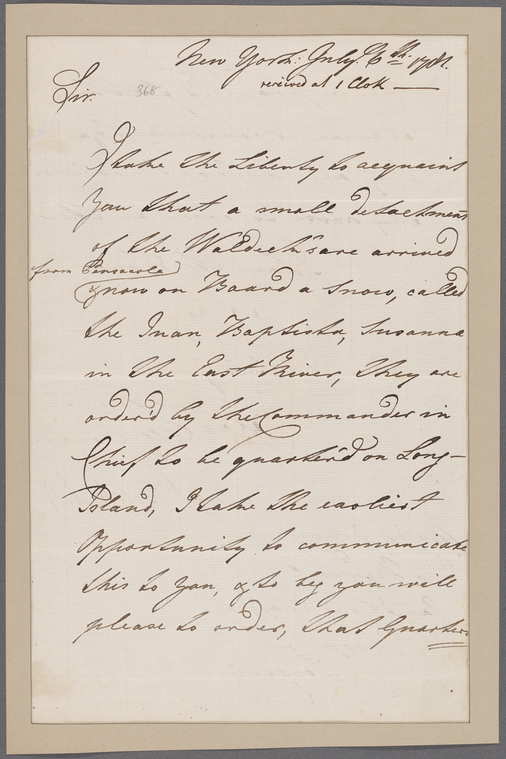 New York: July 6th. 1781.
received at 1 Clok
Sir.
368
I take the Liberty to acquaint
you that a small detachment
of the Waldeck's are arrived
from Pensacola
now on Board a Snow, called
the Juan, Baptista, Susanna
in the East River, they are
order'd by the Commander in
Chief to be quarter'd on Long-
Island, I take the earliest
Opportunity to communicate
this to you, & to beg you will
please to order, that Quarters